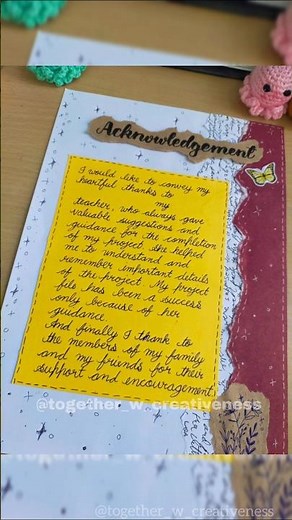 Acknowledgement
I would like to convey my
heartful thanks to
my
teacher, who always gave
valuable suggestions and
guidance for the completion
of my project. She helped
me to understand and
remember important details
of the project. My project
file has been a success
only because of her
guidance.
And finally I thank to
the members of my family
and my friends for their
support and encouragement.
@together_w_creativeness
@together_w_creativeness